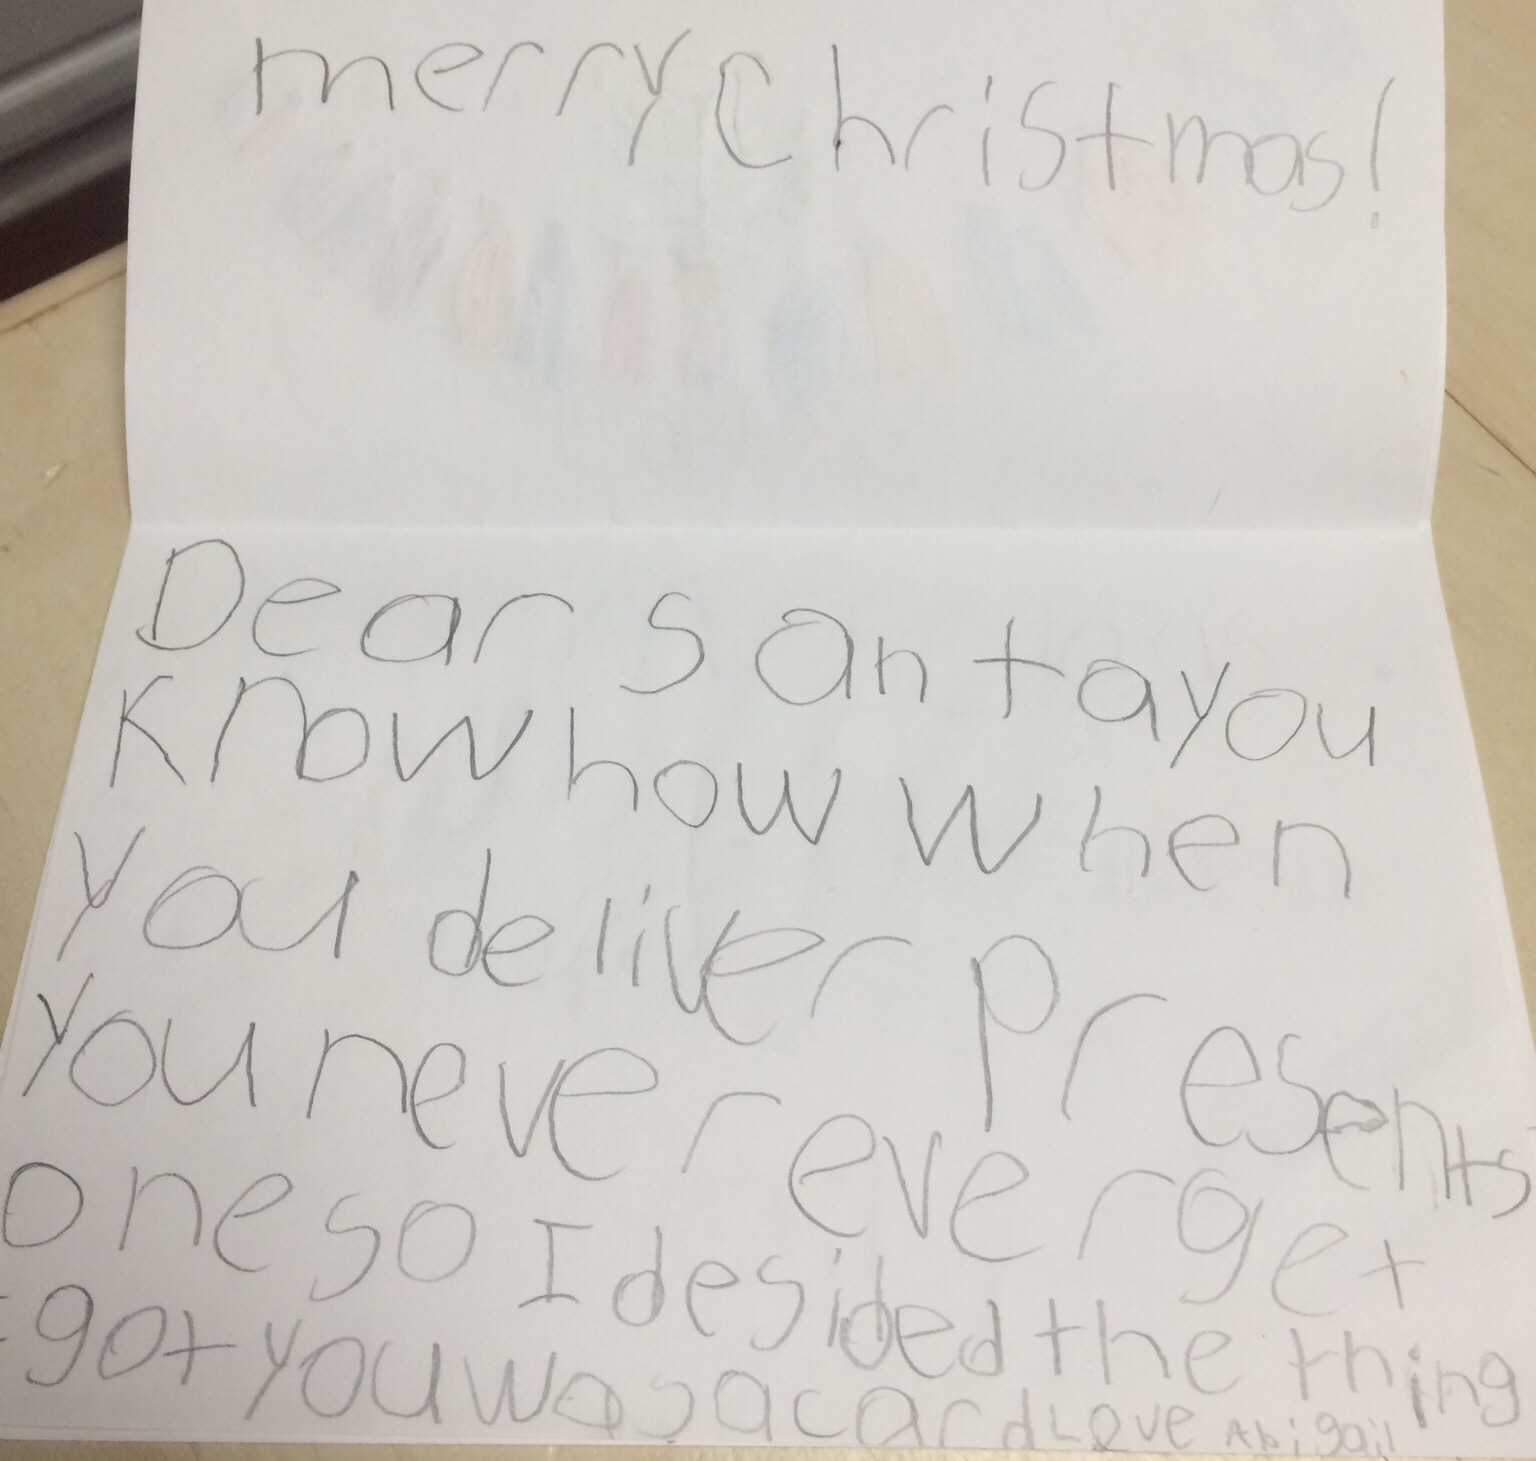 merry Christmas!
Dear santa you
Know how when
you deliver presents
you never ever get
one so I desided the thing
I got you was a card Love Abigail